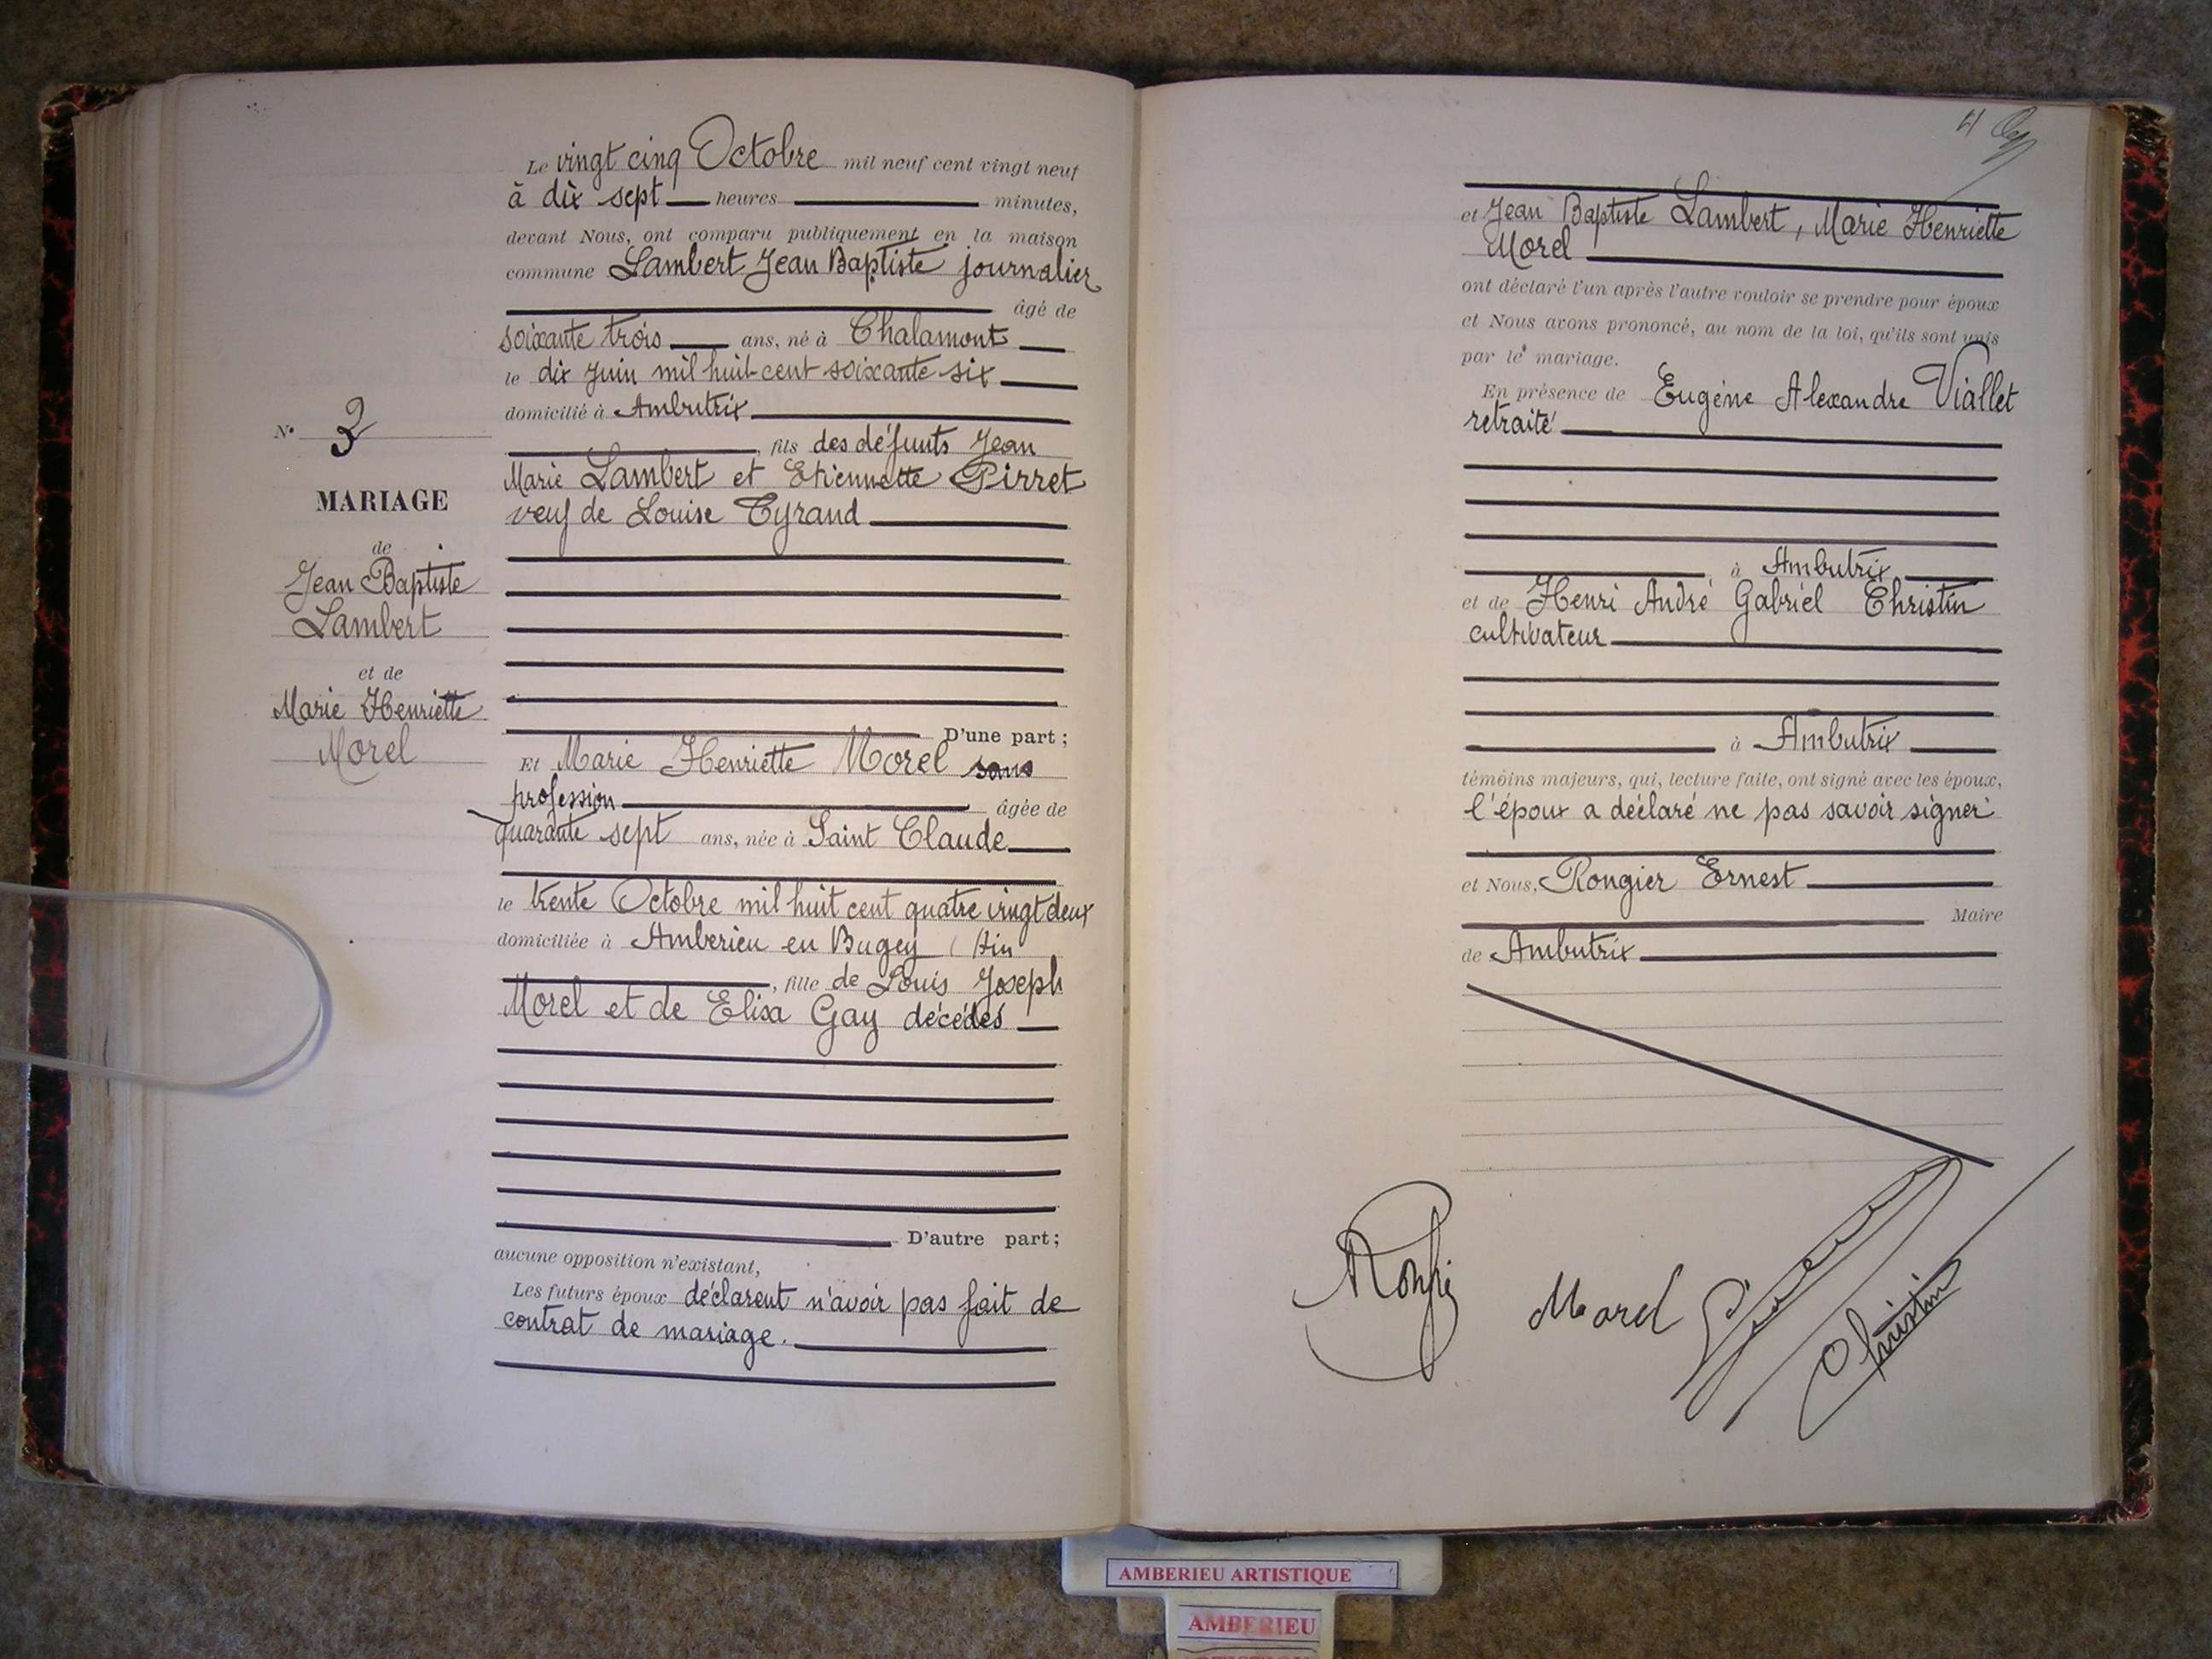 Le vingt cinq Octobre mil neuf cent vingt neuf
à dix sept heures minutes,
devant Nous, ont comparu publiquement en la maison
commune Lambert Jean Baptiste journalier
âgé de
soixante trois ans, né à Chalamont
le dix Juin mil huit cent soixante six
domicilié à Ambutrix
, fils des défunts Jean
Marie Lambert et Etiennette Pirret
veuf de Louise Tyrand
D'une part ;
Et Marie Henriette Morel sans
profession âgée de
quarante sept ans, née à Saint Claude
le trente Octobre mil huit cent quatre vingt deux
domiciliée à Amberieu en Bugey (Ain
, fille de Louis Joseph
Morel et de Elisa Gay décédés
D'autre part ;
aucune opposition n'existant,
Les futurs époux déclarent n'avoir pas fait de
contrat de mariage.
N°
MARIAGE
de
Jean Baptiste
Lambert
et de
Marie Henriette
Morel
et Jean Baptiste Lambert, Marie Henriette
Morel
ont déclaré l'un après l'autre vouloir se prendre pour époux
et Nous avons prononcé, au nom de la loi, qu'ils sont unis
par le mariage.
En présence de Eugène Alexandre Viallet
retraité
à Ambutrix
et de Henri André Gabriel Christin
cultivateur
à Ambutrix
témoins majeurs, qui, lecture faite, ont signé avec les époux,
l'époux a déclaré ne pas savoir signer
et Nous, Rongier Ernest
Maire
de Ambutrix
Morel
Christin
AMBERIEU ARTISTIQUE
AMBERIEU